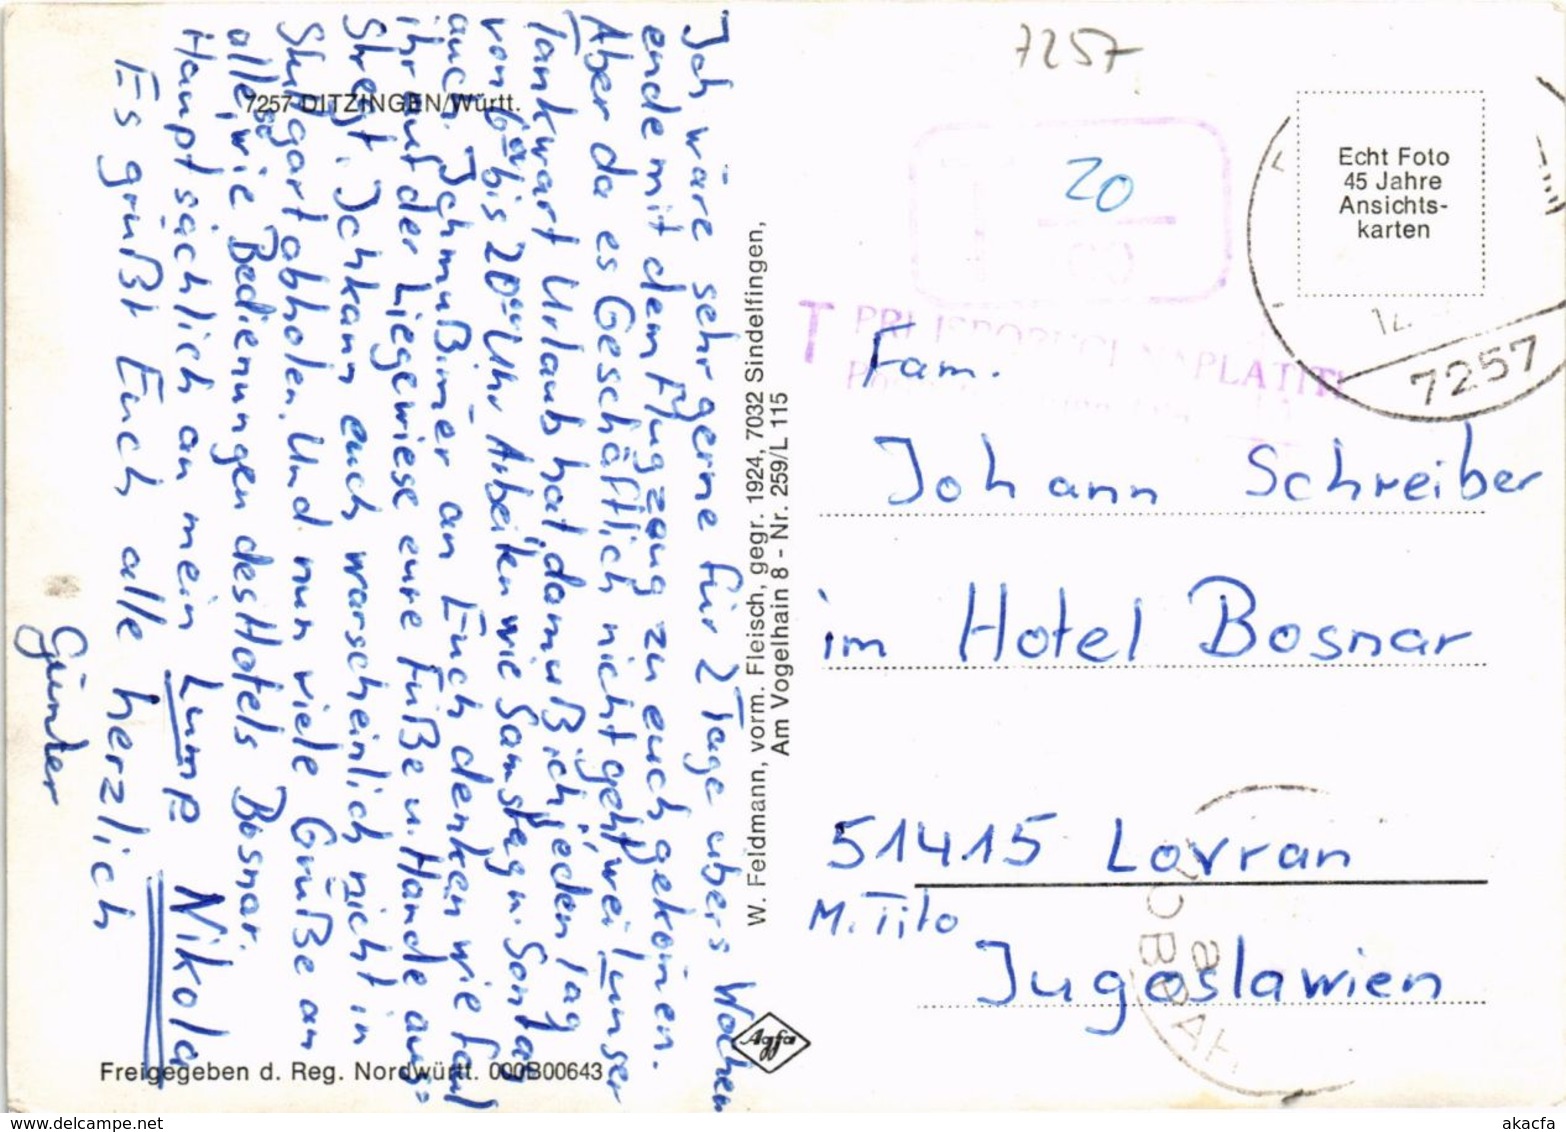 7257
7257 DITZINGEN/Württ.
Ich wäre sehr gerne für 2 Tage übers Wochen
ende mit dem Flugzeug zu euch gekom̄en.
Aber da es Geschäftlich nicht geht, weil unser
Tankwart Urlaub hat, da muß ich jeden Tag
von 6 bis 20 Uhr Arbeiten wie Samstag u. Sontag
auch. Ich muß im̄er an Euch denken wie faul
ihr auf der Liegewiese eure Füße u. Hände aus=
Stregt. Ich kann euch warscheinlich nicht in
Stuttgart abholen. Und nun viele Grüße an
alle, wie Bedienungen des Hotels Bosnar.
Hauptsächlich an mein Lump Nikola
Es grüßt Euch alle herzlich
Günter
Freigegeben d. Reg. Nordwürtt. 000B00643
W. Feldmann, vorm. Fleisch, gegr. 1924, 7032 Sindelfingen,
Am Vogelhain 8 - Nr. 259/L 115
Agfa
20
Echt Foto
45 Jahre
Ansichts-
karten
7257
T
NAPLATITI
Fam.
Johann Schreiber
im Hotel Bosnar
51415 Lovran
M. Tito
Jugoslawien
www.delcampe.net
akacfa